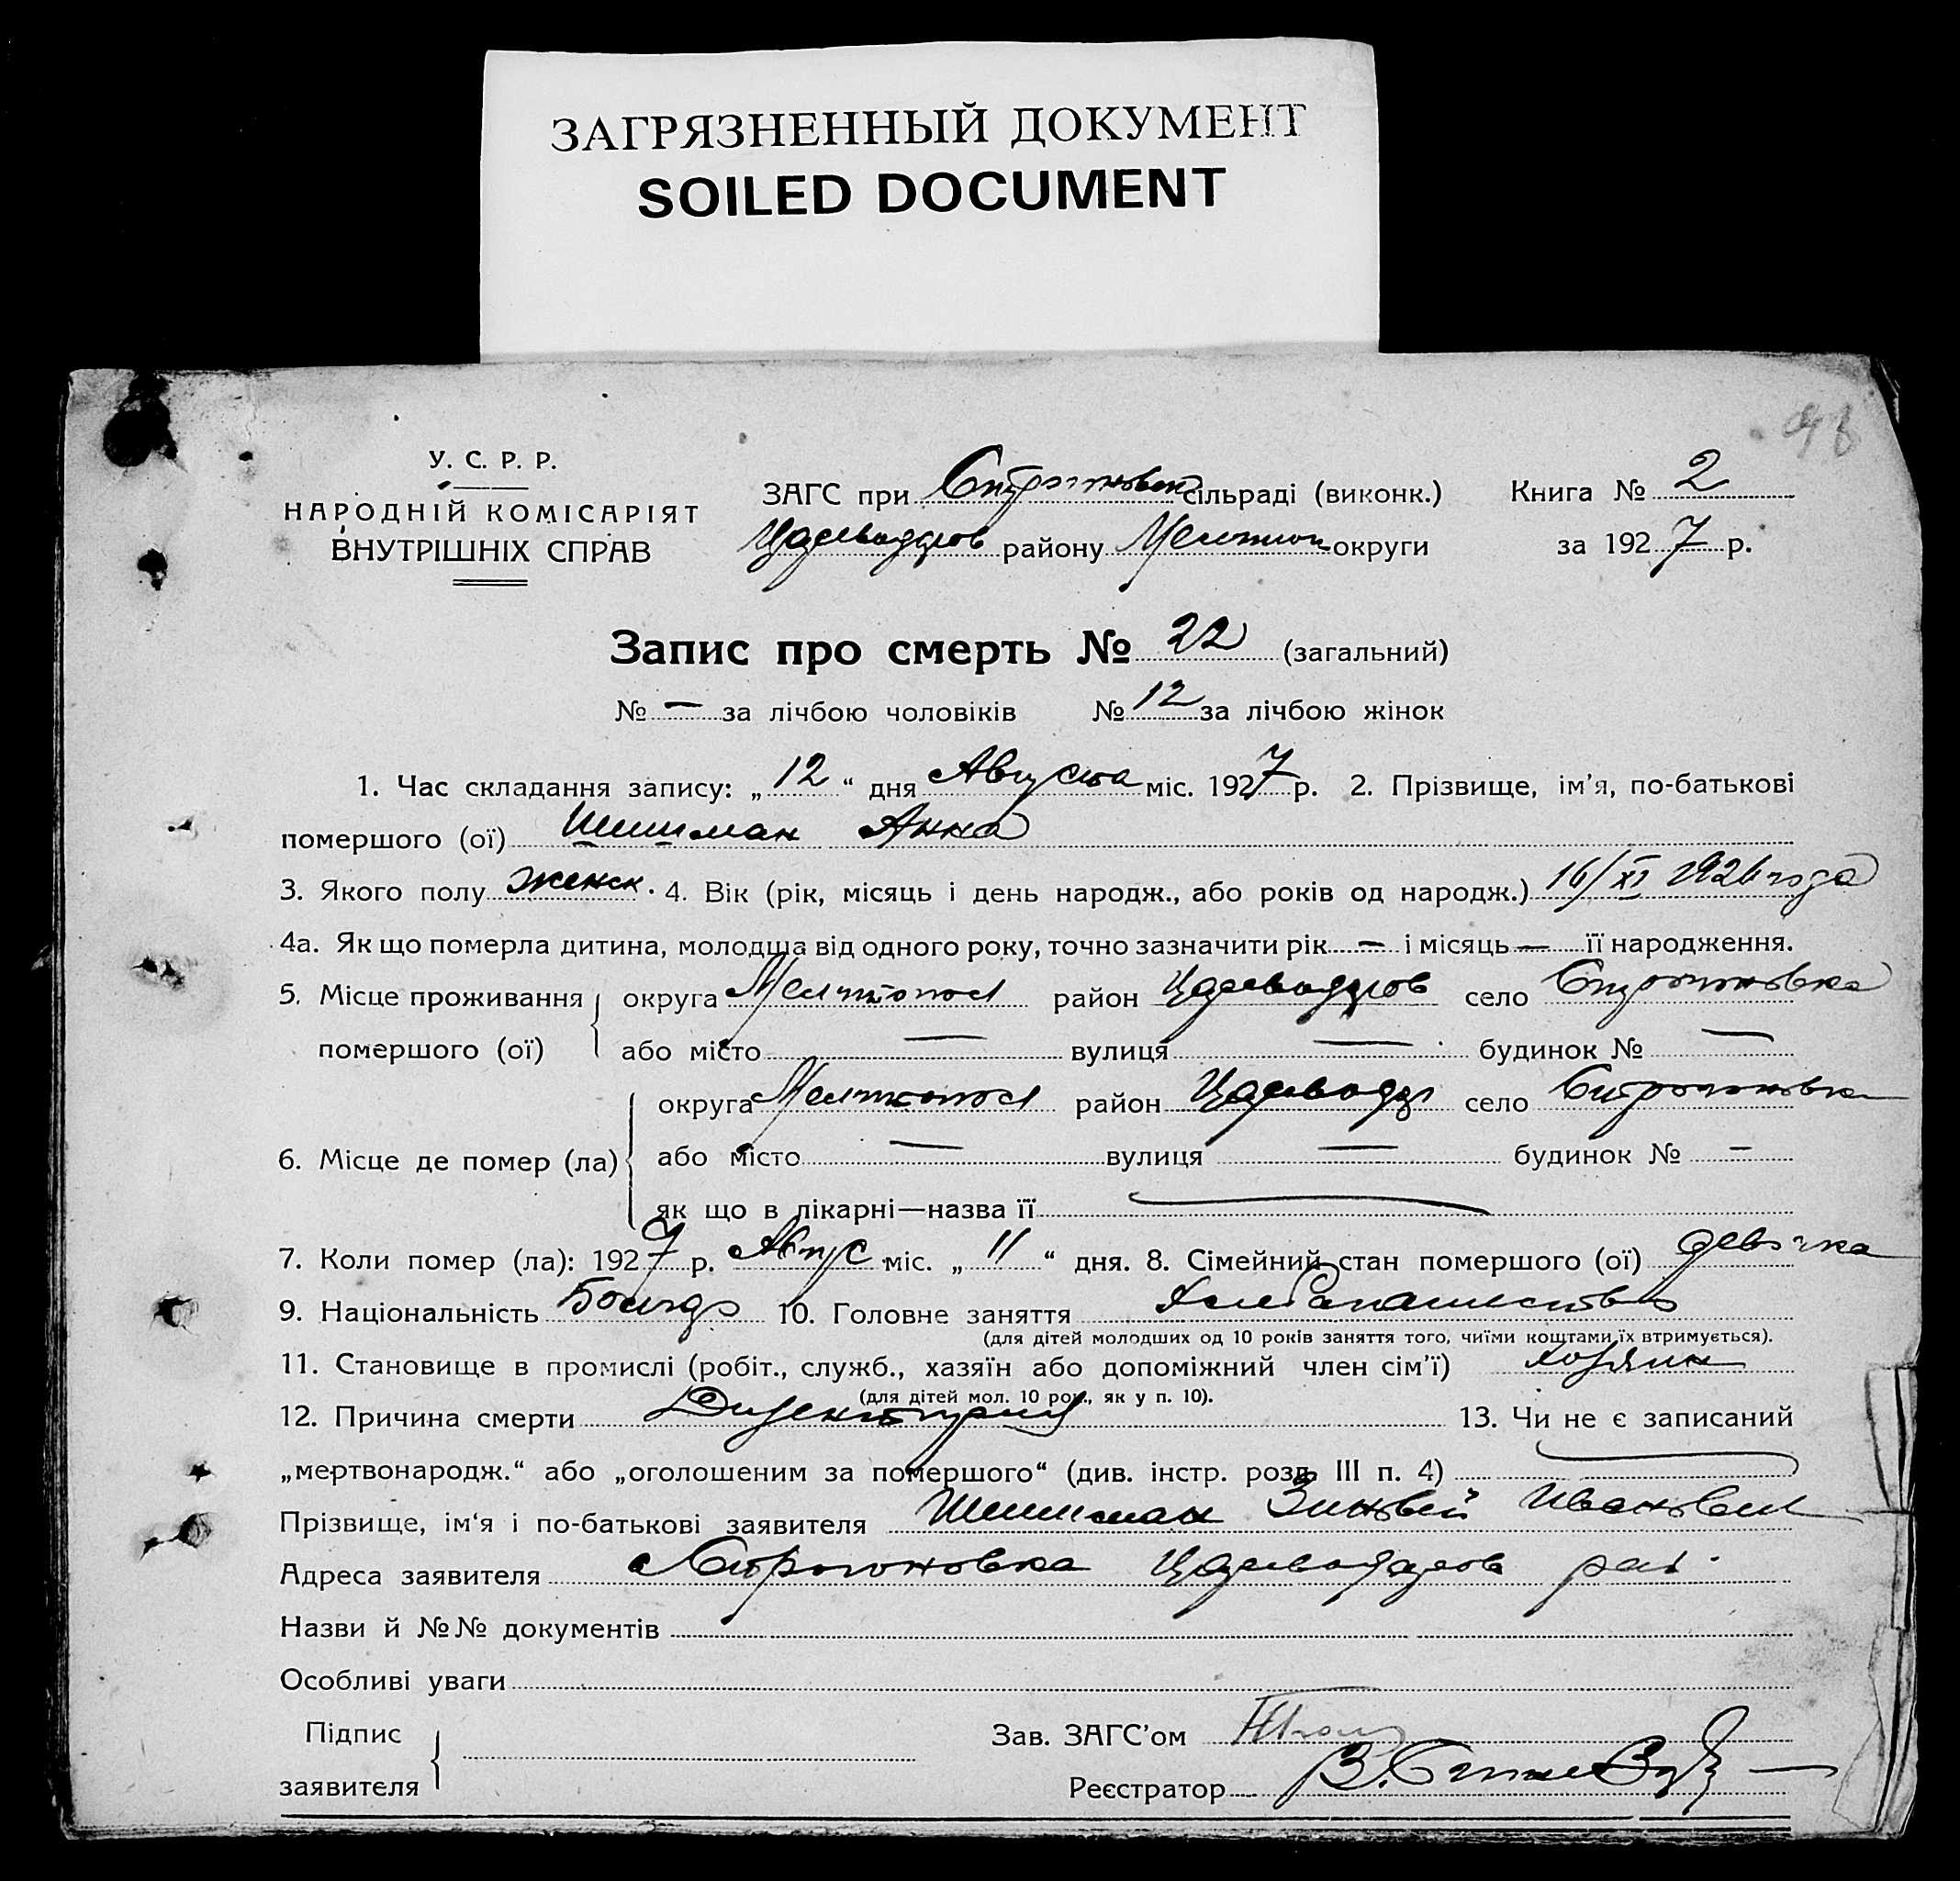 ЗАГРЯЗНЕННЫЙ ДОКУМЕНТ
SOILED DOCUMENT
У. С. Р. Р.
НАРОДНІЙ КОМІСАРІЯТ
ВНУТРІШНІХ СПРАВ
ЗАГС при сільраді (виконк.)
району округи
Книга № 2
за 1927 р.
Запис про смерть № 22 (загальний)
№ — за лічбою чоловіків № 12 за лічбою жінок
1. Час складання запису: „ 12 “ дня Августа міс. 1927 р. 2. Прізвище, ім’я, по-батькові
помершого (ої) Шишман Анна
3. Якого полу женск. 4. Вік (рік, місяць і день народж., або років од народж.) 16/XI 1926 года
4а. Як що померла дитина, молодша від одного року, точно зазначити рік — і місяць — її народження.
5. Місце проживання округа Мелитопол район село Строгоновка
помершого (ої) або місто — вулиця — будинок № —
округа Мелитопол район село Строгоновка
6. Місце де помер (ла) або місто — вулиця — будинок № —
як що в лікарні—назва її —
7. Коли помер (ла): 1927 р. Авгус міс. „ 11 “ дня. 8. Сімейний стан помершого (ої) девочка
9. Національність 10. Головне заняття Хлебопашество
(для дітей молодших од 10 років заняття того, чиїми коштами їх втримується).
11. Становище в промислі (робіт., служб., хазяїн або допоміжний член сім’ї) хозяин
(для дітей мол. 10 рок., як у п. 10).
12. Причина смерти Дизентерия 13. Чи не є записаний
„мертвонародж.“ або „оголошеним за помершого“ (див. інстр. розд. III п. 4) —
Прізвище, ім‘я і по-батькові заявителя Шишман Зиновей Иванович
Адреса заявителя Строгоновка рай.
Назви й №№ документів
Особливі уваги
Підпис
заявителя
Зав. ЗАГС’ом
Реєстратор